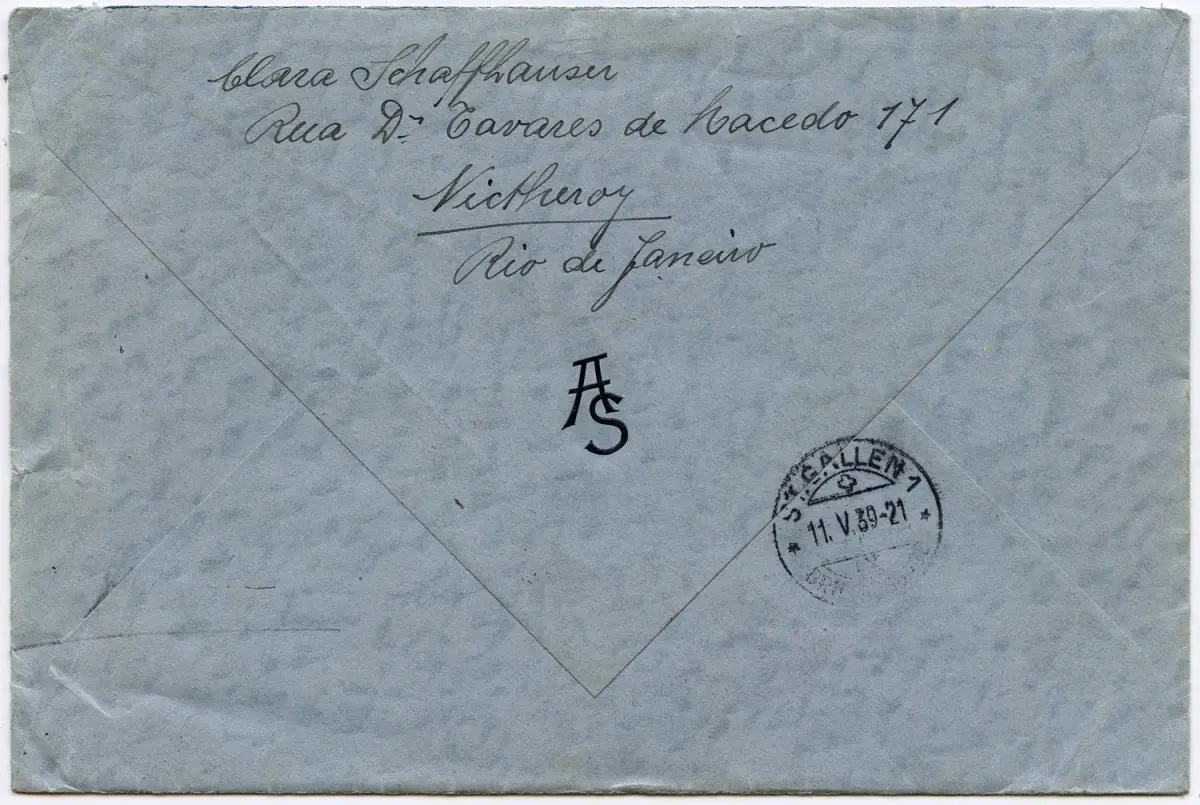 Clara Schaffhauser
Rua Dr. Tavares de Macedo 171
Nictheroy
Rio de Janeiro
AS
ST. GALLEN 1
11. V. 39-21